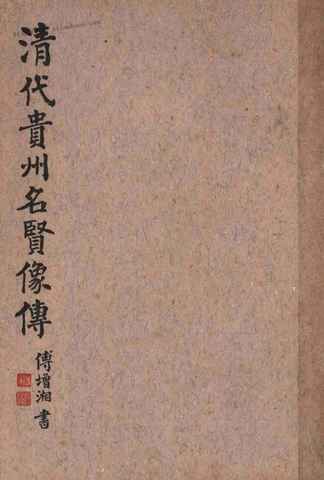 清代貴州名賢像傳
傅增湘書